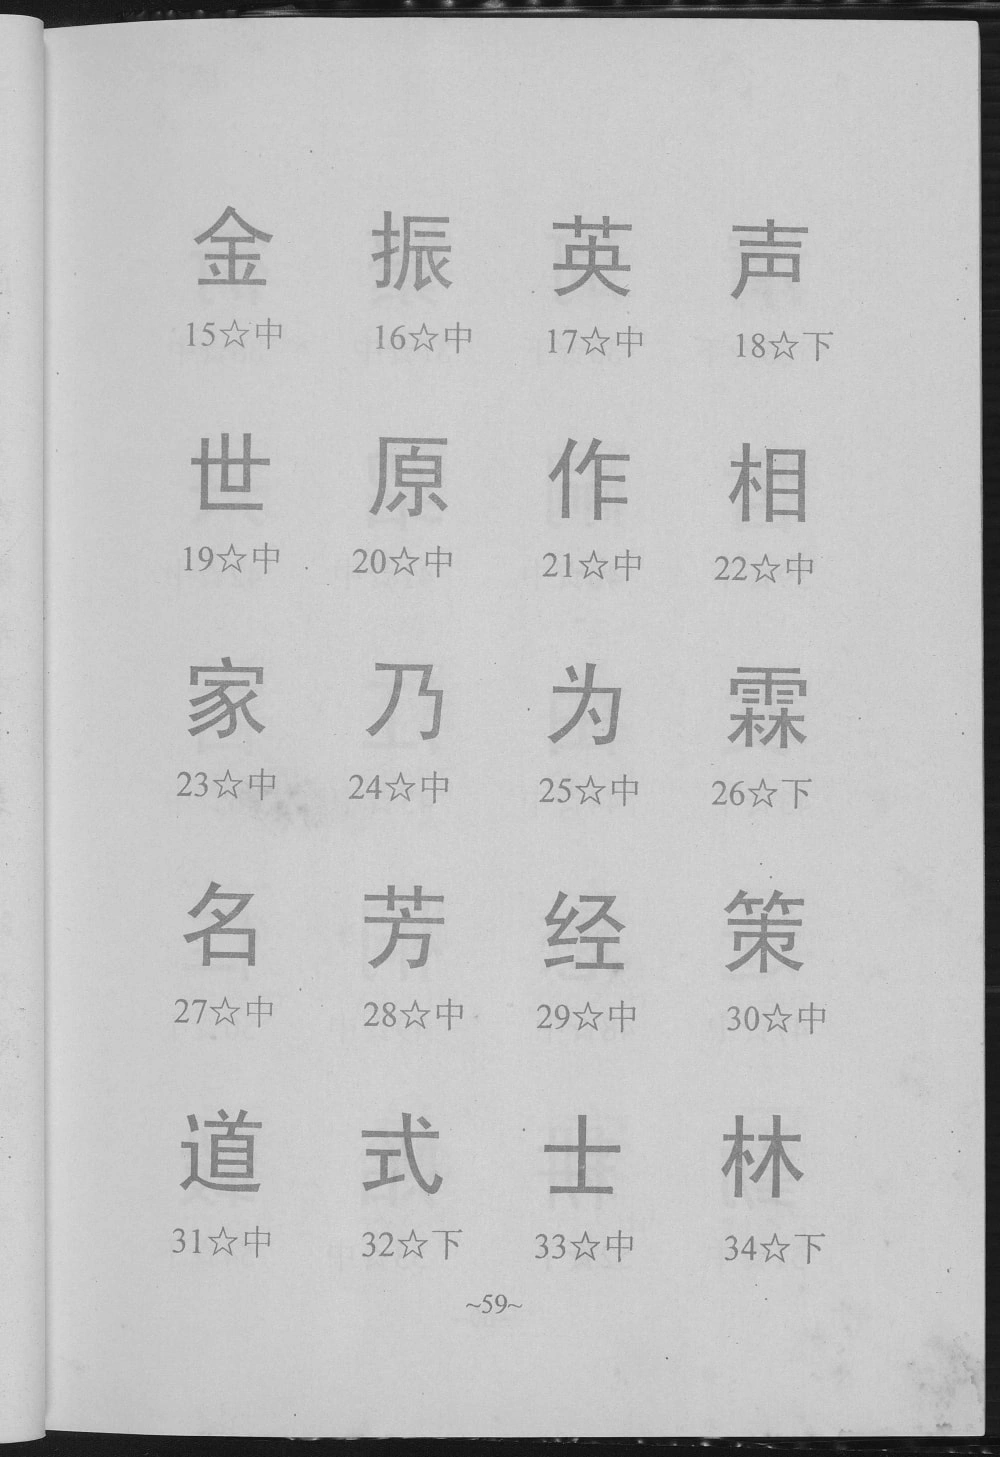 金 振 英 声
15☆中 16☆中 17☆中 18☆下
世 原 作 相
19☆中 20☆中 21☆中 22☆中
家 乃 为 霖
23☆中 24☆中 25☆中 26☆下
名 芳 经 策
27☆中 28☆中 29☆中 30☆中
道 式 士 林
31☆中 32☆下 33☆中 34☆下
~59~